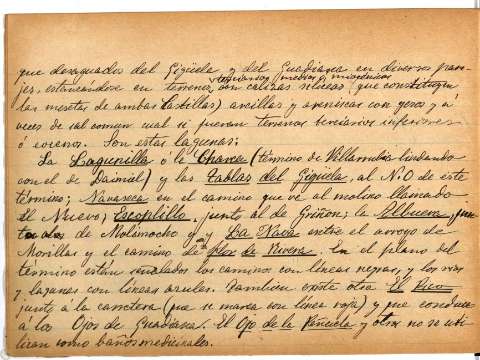 que desaguados del Gigüela y del Guadiana en diversos para-
jes, estancándose en terrenos terciarios medios o miocénicos (con calizas silíceas que constituyen
las mesetas de ambas Castillas) arcillas y areniscas con yesos y a
veces de sal común cual si fueran terrenos terciarios inferiores
ó eocenos. Son estas lagunas:
La Lagunilla ó la Charca (término de Villarrubia lindando
con el de Daimiel) y las Tablas del Gigüela, al N.O de este
término; Navaseca en el camino que va al molino llamado
El Nuevo; Escoplillo, junto al de Griñon; la Albuera, jun
de Molimocho y La Nava entre el arroyo de
Morillas y el camino de Flor de Rivera. En el plano del
término están señalados los caminos con líneas negras, y los ríos
y lagunas con líneas azules. También existe otra El Rico
junto á la carretera (que se marca con línea roja) y que conduce
á los Ojos de Guadiana. El Ojo de la y otros no se uti
lizan como baños medicinales.